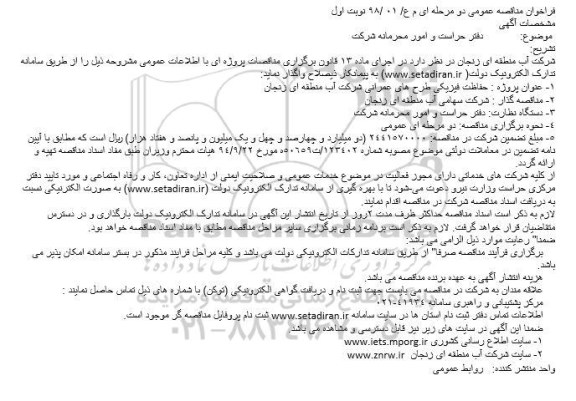 فراخوان مناقصه عمومی دو مرحله ای م ع/ ۰۱ /۹۸ نوبت اول
مشخصات آگهی
موضوع: دفتر حراست و امور محرمانه شرکت
تشریح:
شرکت آب منطقه ای زنجان در نظر دارد در اجرای ماده ۱۳ قانون برگزاری مناقصات پروژه ای با اطلاعات عمومی مشروحه ذیل را از طریق سامانه
تدارک الکترونیک دولت( www.setadiran.ir) به پیمانکار ذیصلاح واگذار نماید:
۱- عنوان پروژه : حفاظت فیزیکی طرح های عمرانی شرکت آب منطقه ای زنجان
۲- مناقصه گذار : شرکت سهامی آب منطقه ای زنجان
۳- دستگاه نظارت: دفتر حراست و امور محرمانه شرکت
۴- نحوه برگزاری مناقصه: دو مرحله ای عمومی
۵- مبلغ تضمین شرکت در مناقصه: ۲۴۴۱۵۷۰۰۰۰ (دو میلیارد و چهارصد و چهل و یک میلیون و پانصد و هفتاد هزار) ریال است که مطابق با آیین
نامه تضمین در معاملات دولتی موضوع مصوبه شماره ۱۲۳۴۰۲/ت۵۰۶۵۹ه مورخ ۹۴/۹/۲۲ هیات محترم وزیران طبق مفاد اسناد مناقصه تهیه و
ارائه گردد.
از کلیه شرکت های خدماتی دارای مجوز فعالیت در موضوع خدمات عمومی و صلاحیت ایمنی از اداره تعاون، کار و رفاه اجتماعی و مورد تایید دفتر
مرکزی حراست وزارت نیرو دعوت می‌شود تا با بهره گیری از سامانه تدارک الکترونیک دولت (www.setadiran.ir) به صورت الکترونیکی نسبت
به دریافت اسناد مناقصه شرکت در مناقصه اقدام نمایند.
لازم به ذکر است اسناد مناقصه حداکثر ظرف مدت ۲روز از تاریخ انتشار این آگهی در سامانه تدارک الکترونیک دولت بارگذاری و در دسترس
متقاضیان قرار خواهد گرفت. لازم به ذکر است برنامه زمانی برگزاری سایر مراحل مناقصه مطابق با مفاد اسناد مناقصه خواهد بود.
ضمنا" رعایت موارد ذیل الزامی می باشد:
برگزاری فرآیند مناقصه صرفا" از طریق سامانه تدارکات الکترونیکی دولت می باشد و کلیه مراحل فرایند مذکور در بستر سامانه امکان پذیر می
باشد.
هزینه انتشار آگهی به عهده برنده مناقصه می باشد.
علاقه مندان به شرکت در مناقصه می بایست جهت ثبت نام و دریافت گواهی الکترونیکی (توکن) با شماره های ذیل تماس حاصل نمایند :
مرکز پشتیبانی و راهبری سامانه ۴۱۹۳۴-۰۲۱
اطلاعات تماس دفتر ثبت نام استان ها در سایت سامانه www.setadiran.ir ثبت نام پروفایل مناقصه گر موجود است.
ضمنا این آگهی در سایت های زیر نیز قابل دسترسی و مشاهده می باشد.
۱- سایت اطلاع رسانی کشوری www.iets.mporg.ir
۲- سایت شرکت آب منطقه ای زنجان www.znrw.ir
واحد منتشر کننده: روابط عمومی